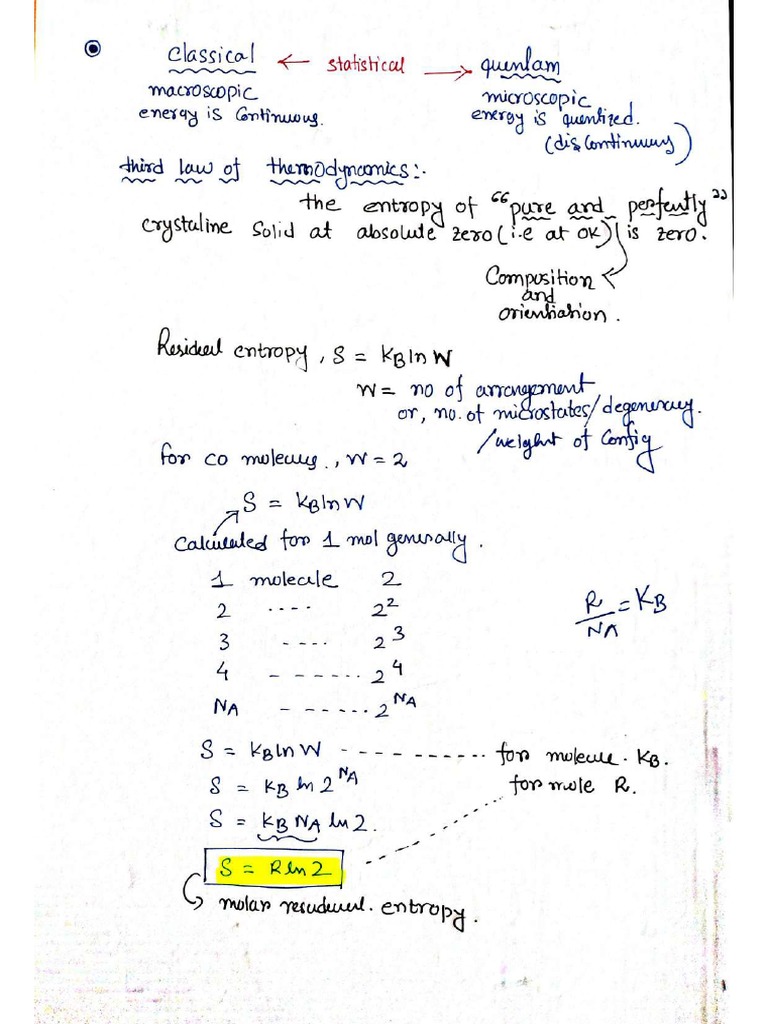 Classical ← statistical → quenlam
macroscopic
energy is Continuous.
microscopic
energy is quentized.
(discontinuous)
third law of thermodynamics:-
the entropy of “pure and perfectly”
crystaline solid at absolute zero (i.e at 0K) is zero.
Composition
and
orientiation.
Residual entropy, S = KB ln W
W = no of arrangement
or, no. of microstates/degeneracy.
/weight of Config
for CO molecule., W = 2
S = KB ln W
Calculated for 1 mol generally.
1 molecule 2
2 .... 2²
3 .... 2³
4 ------- 2⁴
NA ------ 2^NA
R/NA = KB
S = KB ln W - - - - - - - - - - for molecule. KB.
S = KB ln 2^NA for mole R.
S = KB NA ln 2.
S = R ln 2
molar residual. entropy.